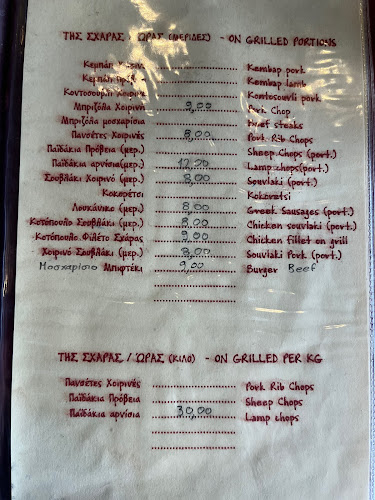 ΤΗΣ ΣΧΑΡΑΣ / ΩΡΑΣ (ΜΕΡΙΔΕΣ) - ON GRILLED PORTIONS
Κεμπάπ Χοιρινό Kembap pork
Κεμπάπ Kembap lamb
Κοντοσούβλι Χοιρινό Kontosouvli pork
Μπριζόλα Χοιρινή 9,00 Pork Chop
Μπριζόλα μοσχαρίσια Beef steaks
Πανσέτες Χοιρινές 8,00 Pork Rib Chops
Παϊδάκια Πρόβεια (μερ.) Sheep Chops (port.)
Παϊδάκια αρνίσια(μερ.) 12,00 Lamp chops(port.)
Σουβλάκι Χοιρινό (μερ.) 8,00 Souvlaki (port.)
Κοκορέτσι Kokoretsi
Λουκάνικο (μερ.) 8,00 Greek Sausages (port.)
Κοτόπουλο Σουβλάκι (μερ.) 8,00 Chicken souvlaki (port.)
Κοτόπουλο Φιλέτο Σχάρας 9,00 Chicken fillet on grill
Χοιρινό Σουβλάκι (μερ.) 8,00 Souvlaki Pork (port.)
Μοσχαρίσιο Μπιφτέκι 9,00 Burger Beef
ΤΗΣ ΣΧΑΡΑΣ / ΩΡΑΣ (ΚΙΛΟ) - ON GRILLED PER KG
Πανσέτες Χοιρινές Pork Rib Chops
Παϊδάκια Πρόβεια Sheep Chops
Παϊδάκια αρνίσια 30,00 Lamp chops